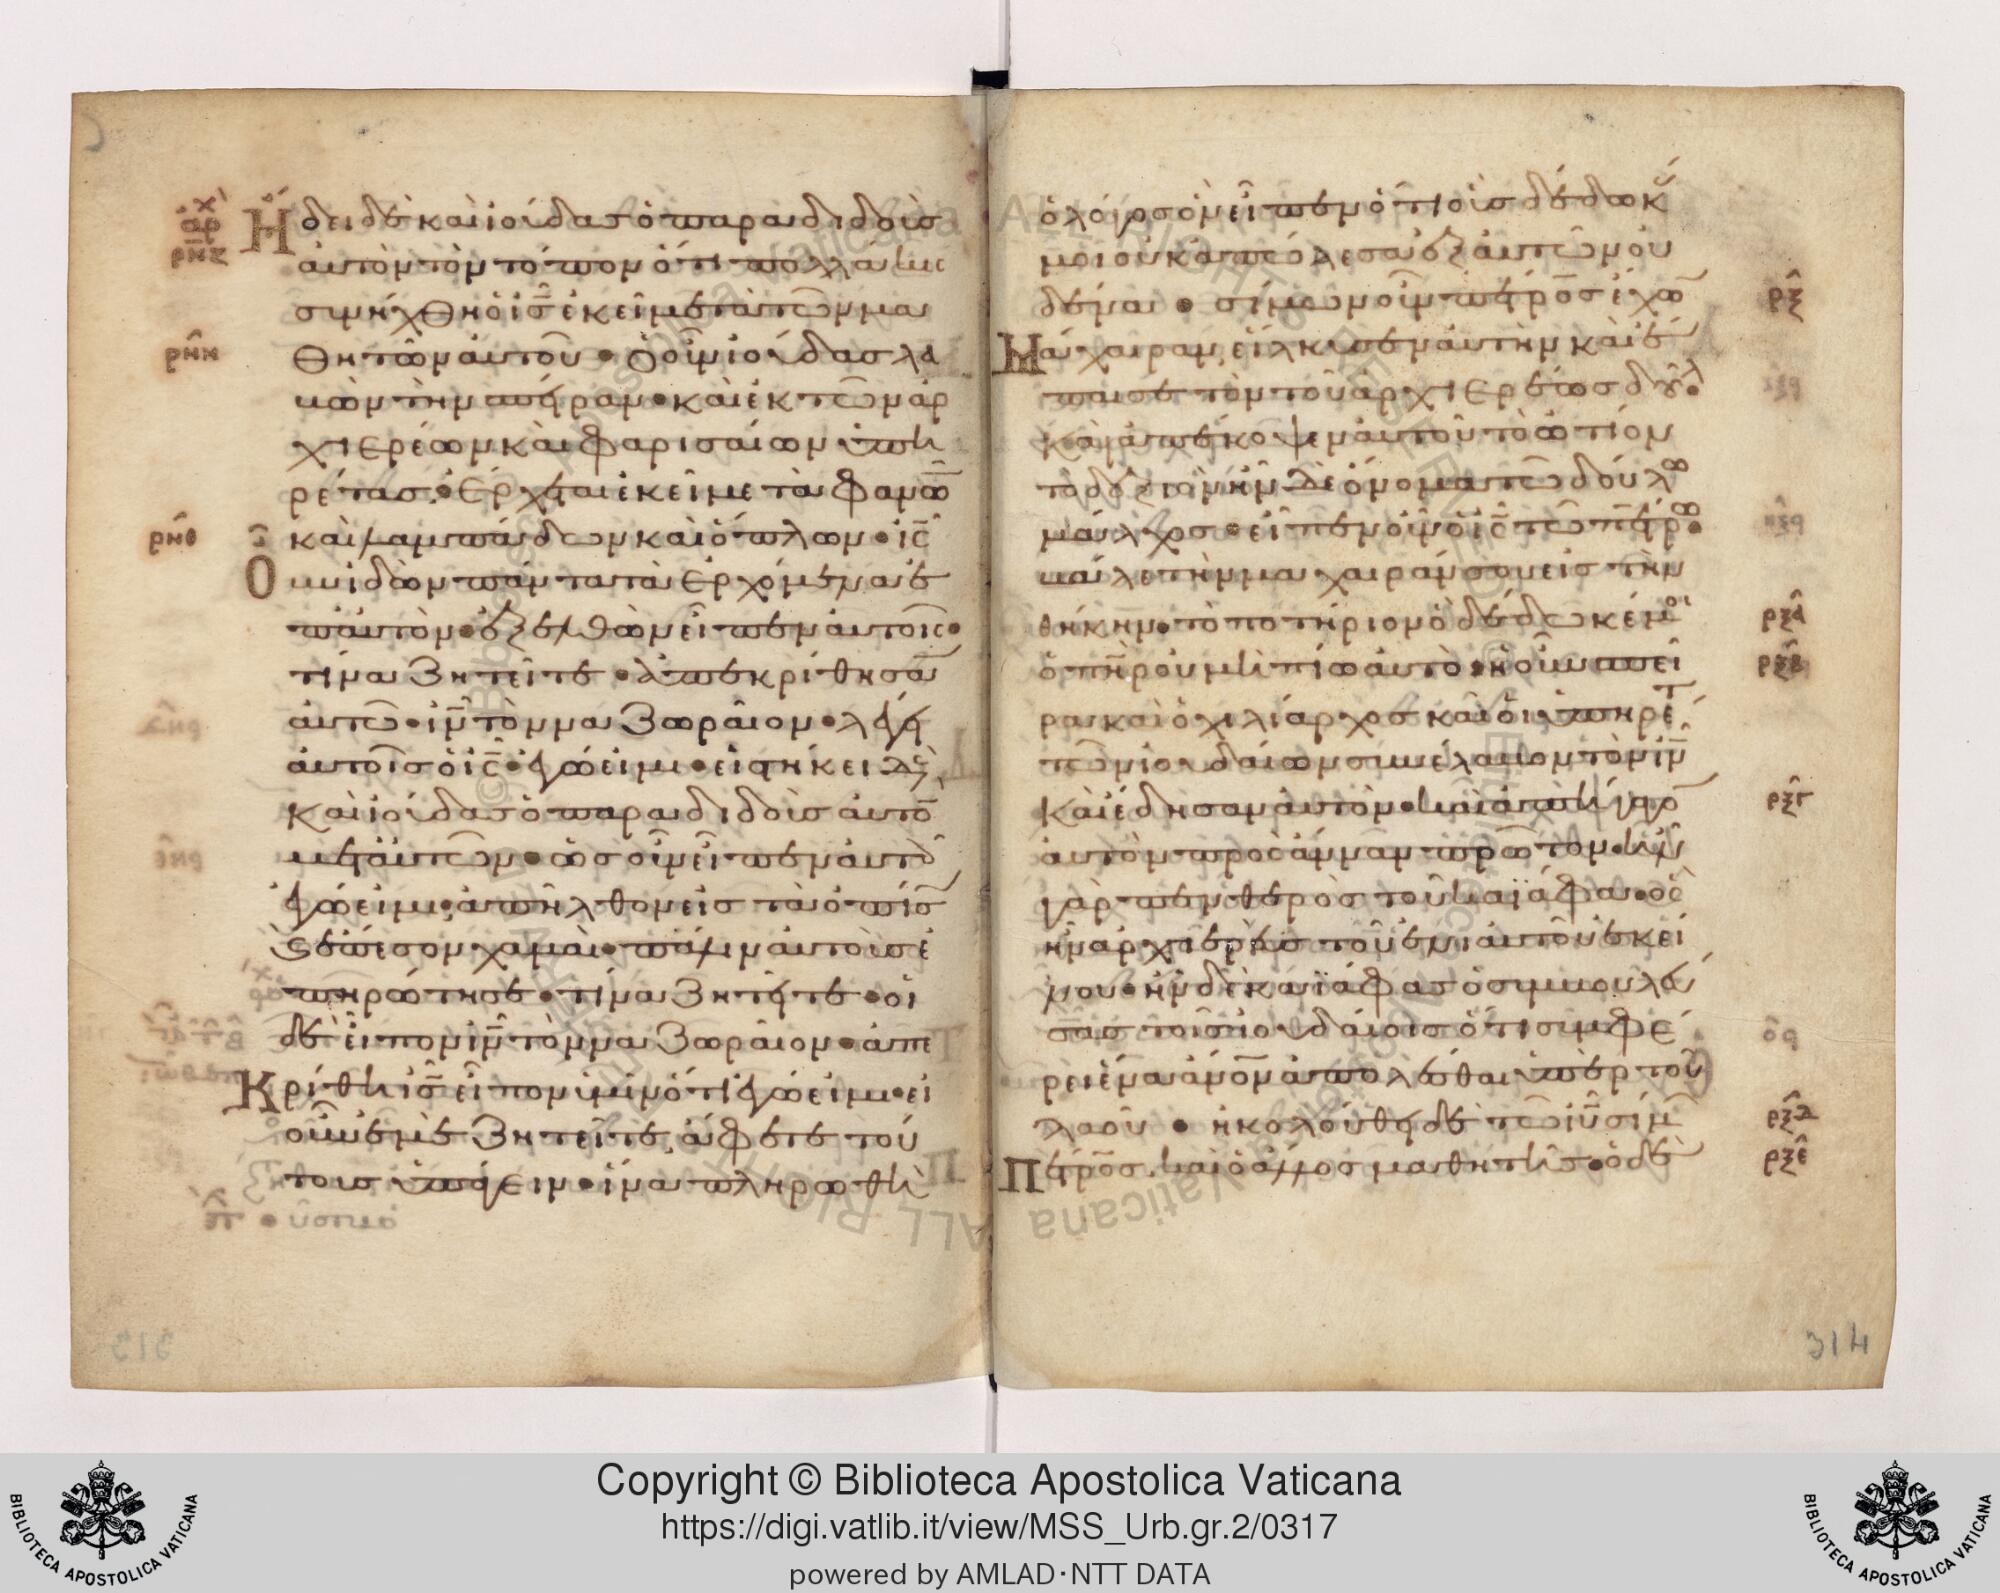 Ἤδει δὲ καὶ ἰούδασ ὁ παραδιδοὺσ
αὐτὸν τὸν τόπον ὅτι πολλάκισ
συνήχθη ὁ ισ ἐκεῖ μετὰ τῶν μα
θητῶν αὐτοῦ • ὁ οὖν ἰούδασ λα
βὼν τὴν σπείραν • καὶ ἐκ τῶν ἀρ
χιερέων καὶ φαρισαίων ὑπη
ρέτασ • ἔρχεται ἐκεῖ μετὰ φανῶ
καὶ λαμπάδων καὶ ὅπλων • ισ
Ὁ οὖν ἰδὼν πάντα τὰ ἐρχόμενα ἐ
π αὐτὸν • ἐξελθὼν εἶπεν αὐτοῖσ •
τίνα ζητεῖτε • ἀπεκρίθησαν
αὐτῶ • ιν τὸν ναζωραῖον • λέγει
αὐτοῖσ ὁ ισ • ἐγώ εἰμι • εἱστήκει δὲ
καὶ ἰούδασ ὁ παραδιδοὺσ αὐτὸ
μετ αὐτῶν • ὡσ οὖν εἶπεν αὐτοῖσ
ἐγώ εἰμι • ἀπῆλθον εἰσ τὰ ὀπίσω
καὶ ἔπεσον χαμαὶ • πάλιν αὐτοὺσ ἐ
πηρώτησε • τίνα ζητεῖτε • οἱ
δὲ εἶπον ιν τὸν ναζωραῖον • ἀπε
Κρίθη ισ εἶπον ὑμῖν ὅτι ἐγώ εἰμι • εἰ
οὖν ἐμὲ ζητεῖτε, ἄφετε τού
τουσ ὑπάγειν • ἵνα πληρωθῆ
ὁ λόγοσ ὃν εἶπεν ὅτι οὓσ δέδωκ
μοι οὐκ ἀπώλεσα ἐξ αὐτῶν οὐ
δένα • σίμων οὖν πέτροσ ἔχων
Μάχαιραν, εἵλκυσεν αὐτὴν καὶ ἔ
παισε τὸν τοῦ ἀρχιερέωσ δοῦλ •
καὶ ἀπέκοψεν αὐτοῦ τὸ ὠτίον
τὸ δεξιὸν ἦν δὲ ὄνομα τῶ δούλω
μάλχοσ • εἶπεν οὖν ὁ ισ τῶ πέτρω •
βάλε τὴν μάχαιράν σου εἰσ τὴν
θήκην • τὸ ποτήριον ὃ δέδωκέ μοι
ὁ πηρ οὐ μὴ πίω αὐτὸ • ἡ οὖν σπεῖ
ρα καὶ ὁ χιλίαρχοσ καὶ οἱ ὑπηρέτ
τῶν ἰουδαίων συνέλαβον τὸν ιν
καὶ ἔδησαν αὐτὸν • καὶ ἀπήγαγον
αὐτὸν πρὸσ ἄνναν πρῶτον • ἦν
γὰρ πενθερὸσ τοῦ καϊάφα • ὃσ
ἦν ἀρχιερεὺσ τοῦ ἐνιαυτοῦ ἐκεί
νου • ἦν δὲ καϊάφασ ὁ συμβουλεύ
σασ τοῖσ ἰουδαίοισ ὅτι συμφέ
ρει ἕνα ἄνον ἀπολέσθαι ὑπὲρ τοῦ
λαοῦ • ἠκολούθει δὲ τῶ ιυ σίμων
Πέτροσ, καὶ ὁ ἄλλοσ μαθητήσ • ὁ δὲ
ρνη
ρνθ
ρξ
ρξα
ρξβ
ρξγ
ρξδ
ρξε
314
Copyright © Biblioteca Apostolica Vaticana
https://digi.vatlib.it/view/MSS_Urb.gr.2/0317
powered by AMLAD·NTT DATA
BIBLIOTECA APOSTOLICA VATICANA
BIBLIOTECA APOSTOLICA VATICANA